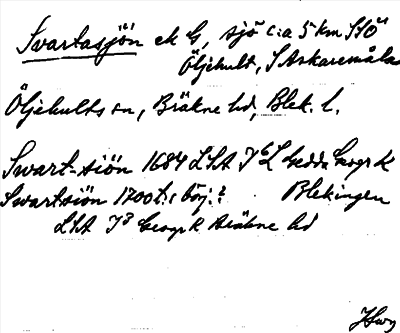 Svartasjön ek G, sjö c:a 5 km SSÖ
Öljehult, S Askaremåla
Öljehults sn, Bräkne hd, Blek. l.
Swart-siön 1684 LSA Gedda Geogr K
Swartsiön 1700t:s börj.: Blekingen
LSA Geogr K Bräkne hd